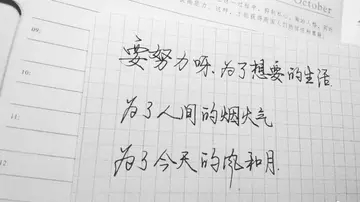 October
09:
10:
11:
12
要努力呀,为了想要的生活
为了人间的烟火气
为了今天的肉和月